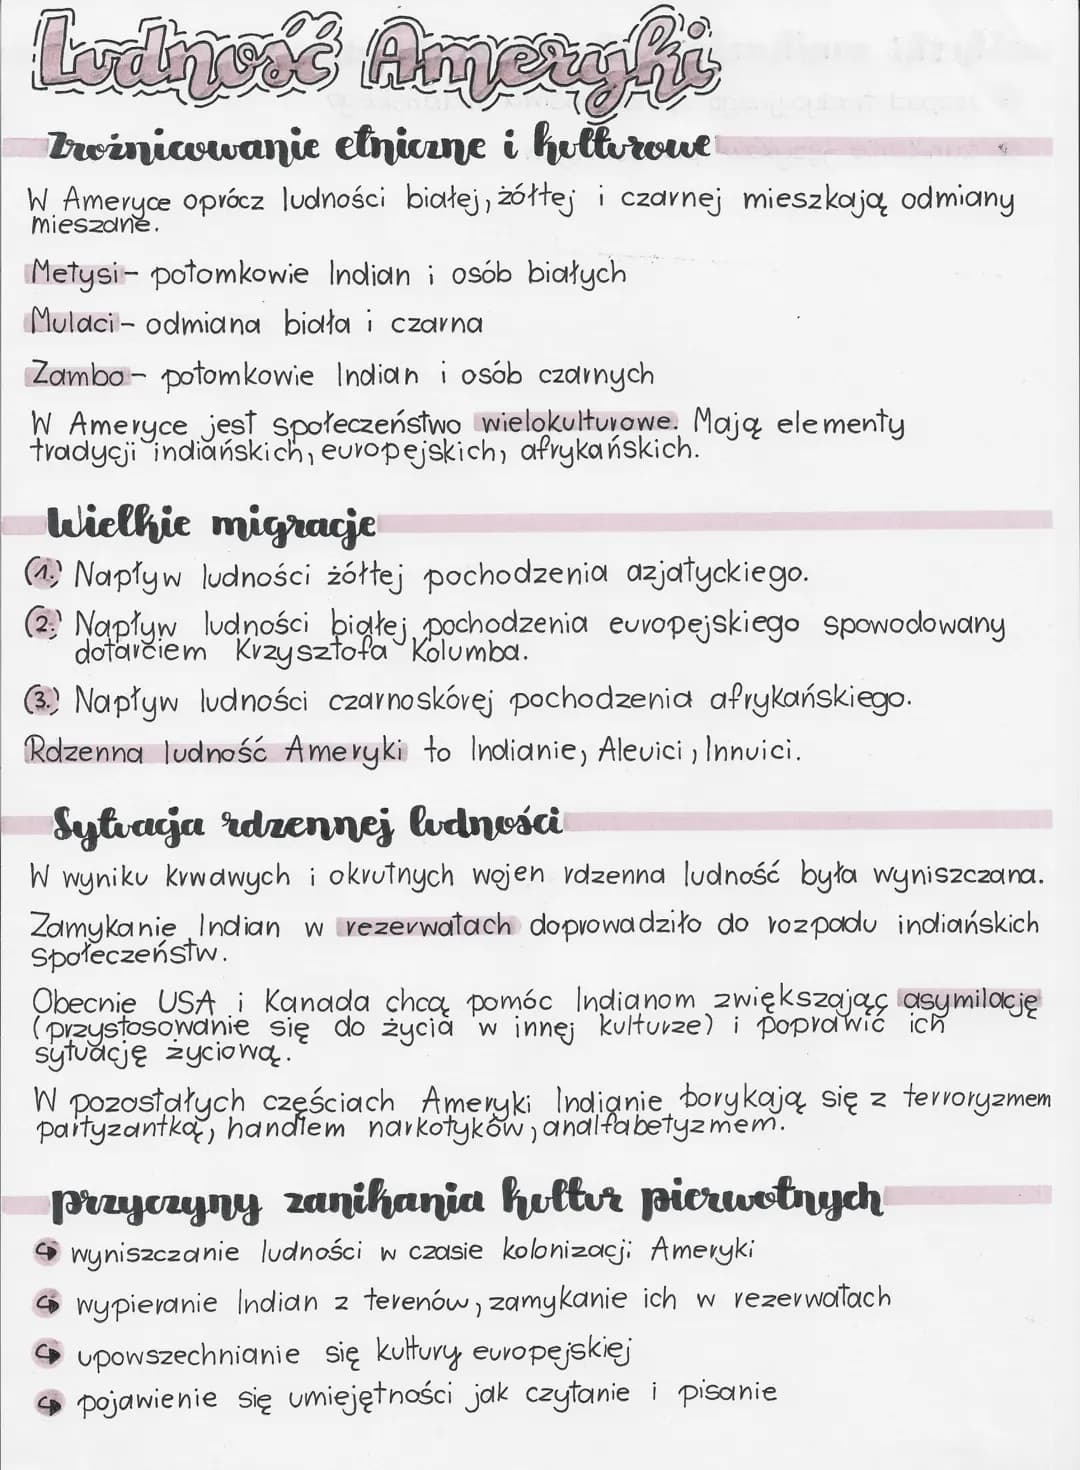 Ludność Ameryki
Zróżnicowanie etniczne i kulturowe
W Ameryce oprócz ludności białej, żółtej i czarnej mieszkają odmiany
mieszane.
Metysi- potomkowie Indian i osób białych
Mulaci- odmiana biała i czarna
Zambo- potomkowie Indian i osób czarnych
W Ameryce jest społeczeństwo wielokulturowe. Mają elementy
tradycji indiańskich, europejskich, afrykańskich.
Wielkie migracje
1. Napływ ludności żółtej pochodzenia azjatyckiego.
2. Napływ ludności białej pochodzenia europejskiego spowodowany
dotarciem Krzysztofa Kolumba.
3. Napływ ludności czarnoskórej pochodzenia afrykańskiego.
Rdzenną ludność Ameryki to Indianie, Aleuici, Innuici.
Sytuacja rdzennej ludności
W wyniku krwawych i okrutnych wojen rdzenna ludność była wyniszczana.
Zamykanie Indian w rezerwatach doprowadziło do rozpadu indiańskich
społeczeństw.
Obecnie USA i Kanada chcą pomóc Indianom zwiększając asymilację
(przystosowanie się do życia w innej kulturze) i poprawić ich
sytuację życiową.
W pozostałych częściach Ameryki Indianie borykają się z terroryzmem
partyzantką, handlem narkotyków, analfabetyzmem.
przyczyny zanikania kultur pierwotnych
wyniszczanie ludności w czasie kolonizacji Ameryki
wypieranie Indian z terenów, zamykanie ich w rezerwatach
upowszechnianie się kultury europejskiej
pojawienie się umiejętności jak czytanie i pisanie